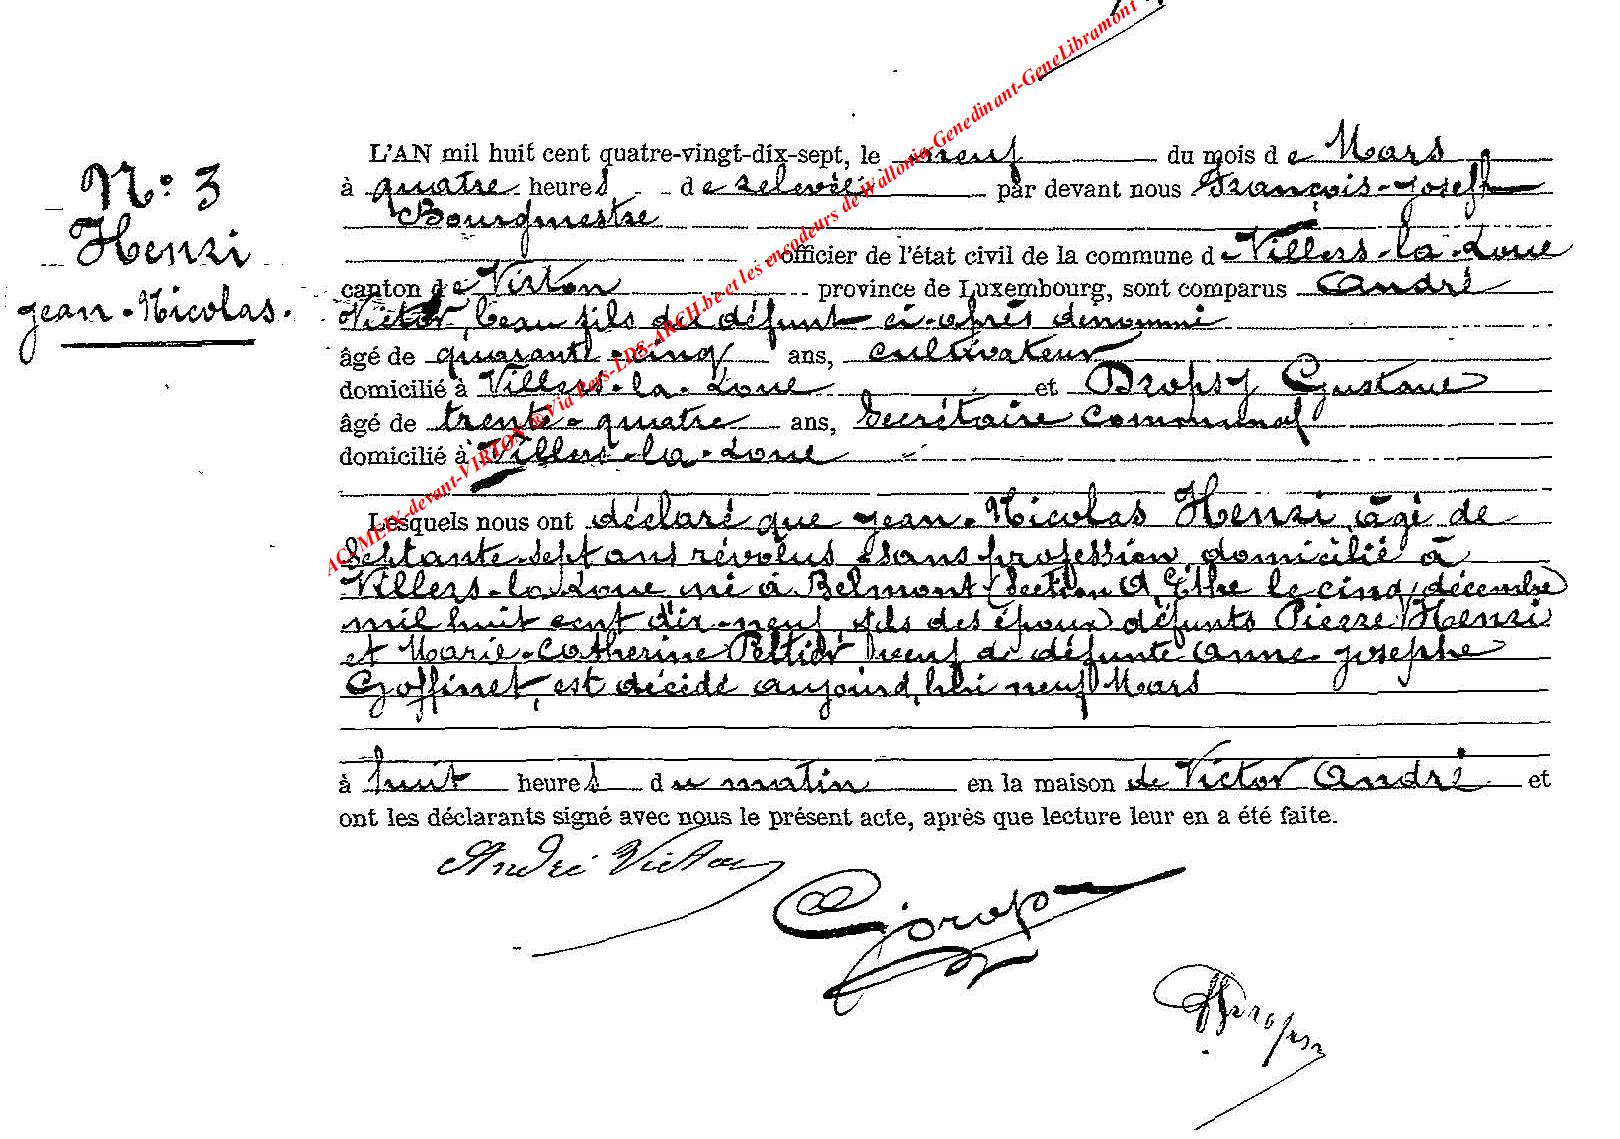 N° 3
Henri
Jean-Nicolas.
L'AN mil huit cent quatre-vingt-dix-sept, le neuf du mois de Mars
à quatre heures de relevée par devant nous François-Joseph
Bourgmestre
officier de l'état civil de la commune de Villers-la-Loue
canton de Virton province de Luxembourg, sont comparus André
Victor, beau fils du défunt ci-après dénommé
âgé de quarante-cinq ans, cultivateur
domicilié à Villers-la-Loue et Dropsy Gustave
âgé de trente-quatre ans, Secrétaire Communal
domicilié à Villers-la-Loue
Lesquels nous ont déclaré que Jean-Nicolas Henri, âgé de
Septante-sept ans révolus sans profession, domicilié à
Villers-la-Loue né à Belmont (Section d'Ethe le cinq décembre
mil huit cent dix-neuf, fils des époux défunts Pierre Henri
et Marie-Catherine Peltier veuf de défunte Anne-Josephe
Goffinet, est décédé aujourd'hui neuf Mars
à huit heures du matin en la maison de Victor André et
ont les déclarants signé avec nous le présent acte, après que lecture leur en a été faite.
André Victor
ACOMELY-devant-VIRTON®Via Pers-LDS-ARCH.be et les encodeurs de Wallonia-Genedinant-GeneLibramont